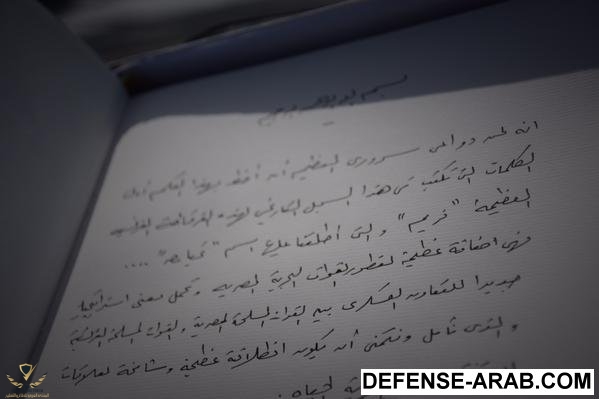 بسم الله الرحمن الرحيم
انه لمن دواعى سرورى العظيم أن أخط بهذا القلم أول
الكلمات التى تكتب فى هذا السجل التاريخى لهذه الفرقاطة الفرنسية
العظيمة "فريم" والتى أطلقنا عليها اسم "تحيا مصر" ....
فهى اضافة عظيمة لتطور القوات البحرية المصرية وتحمل معنى استراتيجيا
جديدا للتعاون العسكرى بين القوات المسلحة المصرية والقوات المسلحة الفرنسية
والذى نأمل ونتمنى أن يكون انطلاقة عظيمة وشامخة لعلاقات
DEFENSE-ARAB.COM